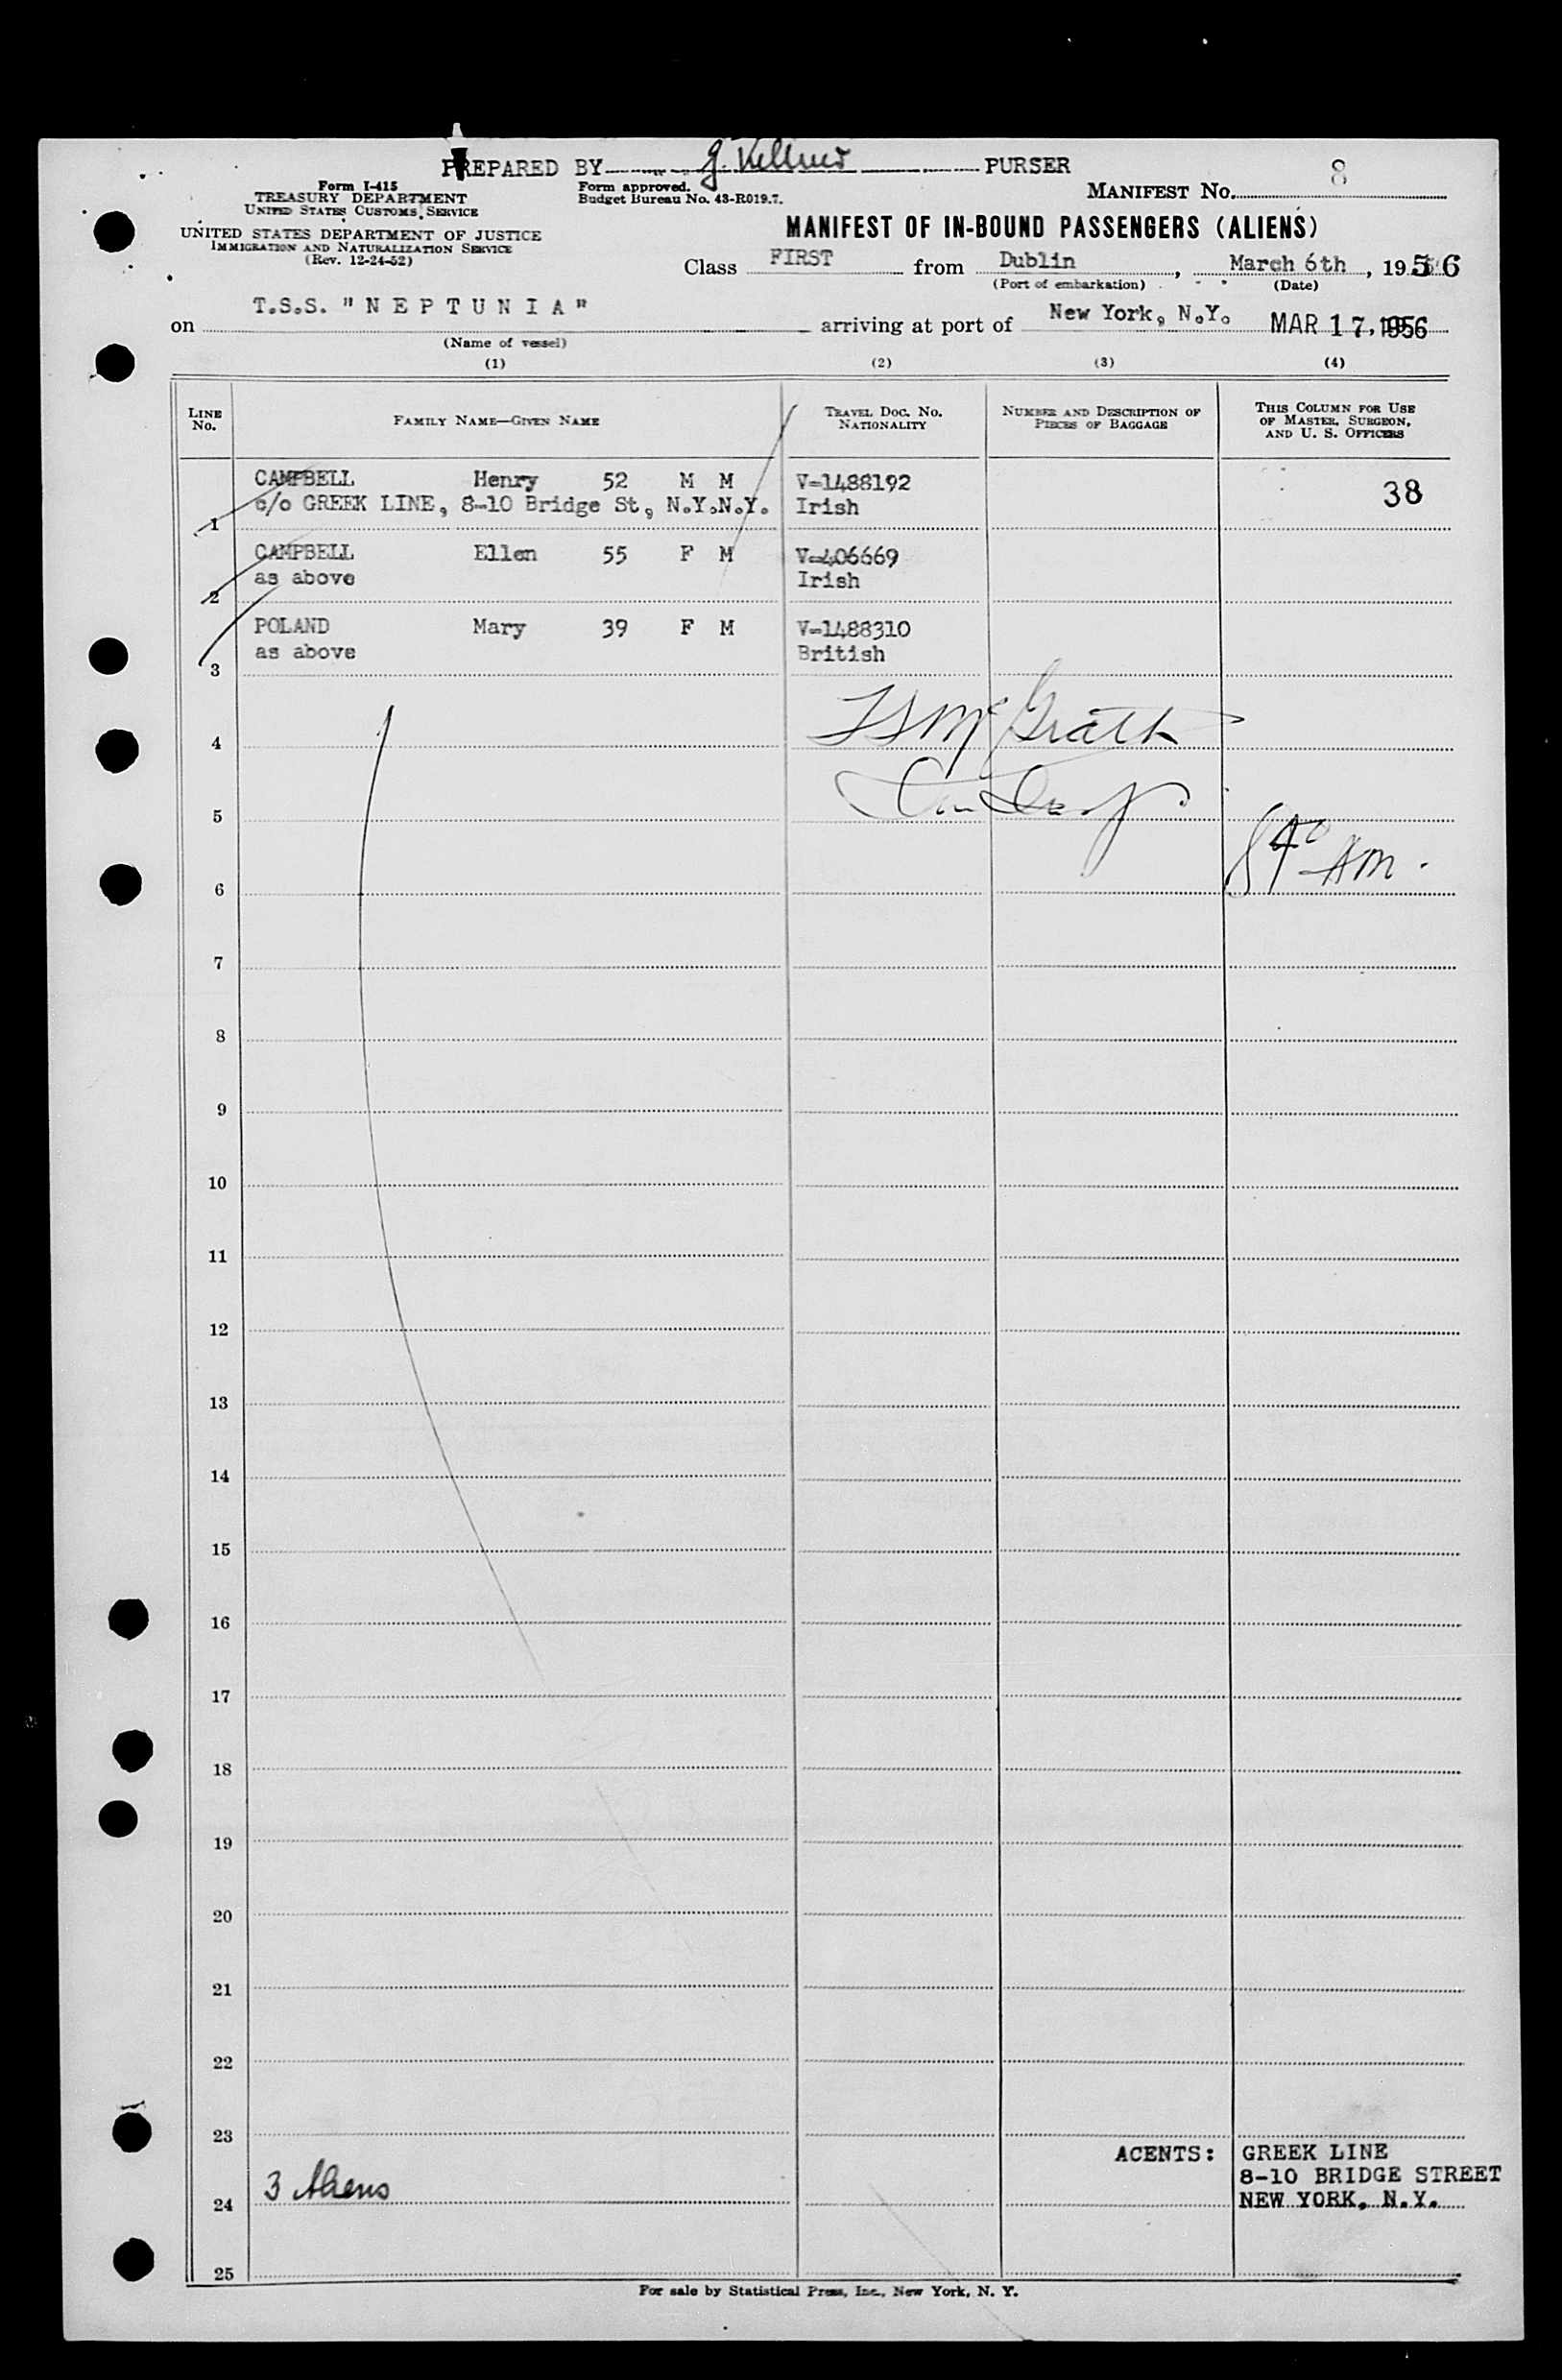 PREPARED BY PURSER
Form I-415
TREASURY DEPARTMENT
UNITED STATES CUSTOMS SERVICE
UNITED STATES DEPARTMENT OF JUSTICE
IMMIGRATION AND NATURALIZATION SERVICE
(Rev. 12-24-52)
Form approved.
Budget Bureau No. 43-R019.7.
MANIFEST NO. 8
MANIFEST OF IN-BOUND PASSENGERS (ALIENS)
Class FIRST from Dublin, March 6th, 1956
(Port of embarkation) (Date)
on T.S.S. "N E P T U N I A" arriving at port of New York, N.Y. MAR 17, 1956
(Name of vessel)
(1) (2) (3) (4)
LINE NO. FAMILY NAME—GIVEN NAME TRAVEL DOC. NO. NATIONALITY NUMBER AND DESCRIPTION OF PIECES OF BAGGAGE THIS COLUMN FOR USE OF MASTER, SURGEON, AND U. S. OFFICERS
CAMPBELL Henry 52 M M V-1488192 38
1 c/o GREEK LINE, 8-10 Bridge St, N.Y.N.Y. Irish
CAMPBELL Ellen 55 F M V-406669
2 as above Irish
POLAND Mary 39 F M V-1488310
3 as above British
4 McGrath
5
6 8 40 AM.
7
8
9
10
11
12
13
14
15
16
17
18
19
20
21
22
23
ACENTS: GREEK LINE
8-10 BRIDGE STREET
24 3 Aliens NEW YORK, N.Y.
25
For sale by Statistical Press, Inc., New York, N. Y.